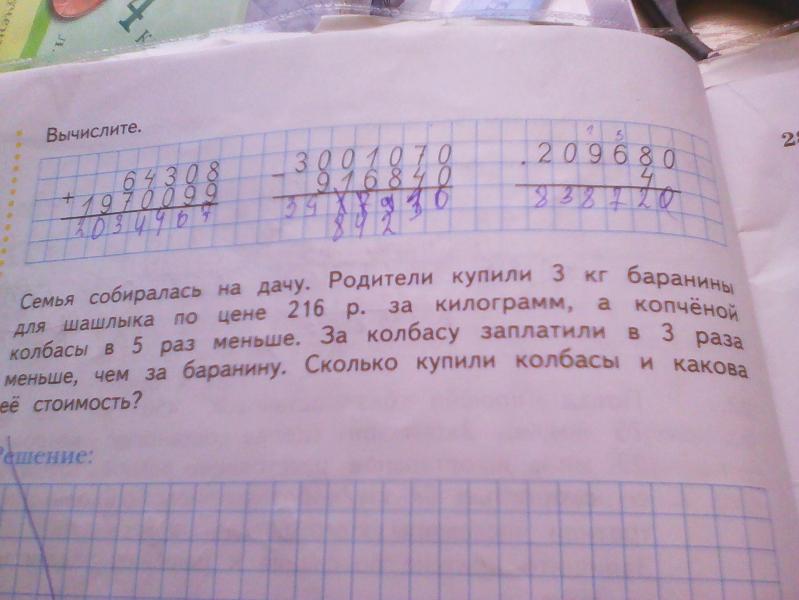 4
Вычислите.
64308
+
1970099
2034407
3001070
-
916840
842
209680
4
838720
Семья собиралась на дачу. Родители купили 3 кг баранины
для шашлыка по цене 216 р. за килограмм, а копчёной
колбасы в 5 раз меньше. За колбасу заплатили в 3 раза
меньше, чем за баранину. Сколько купили колбасы и какова
её стоимость?
Решение: